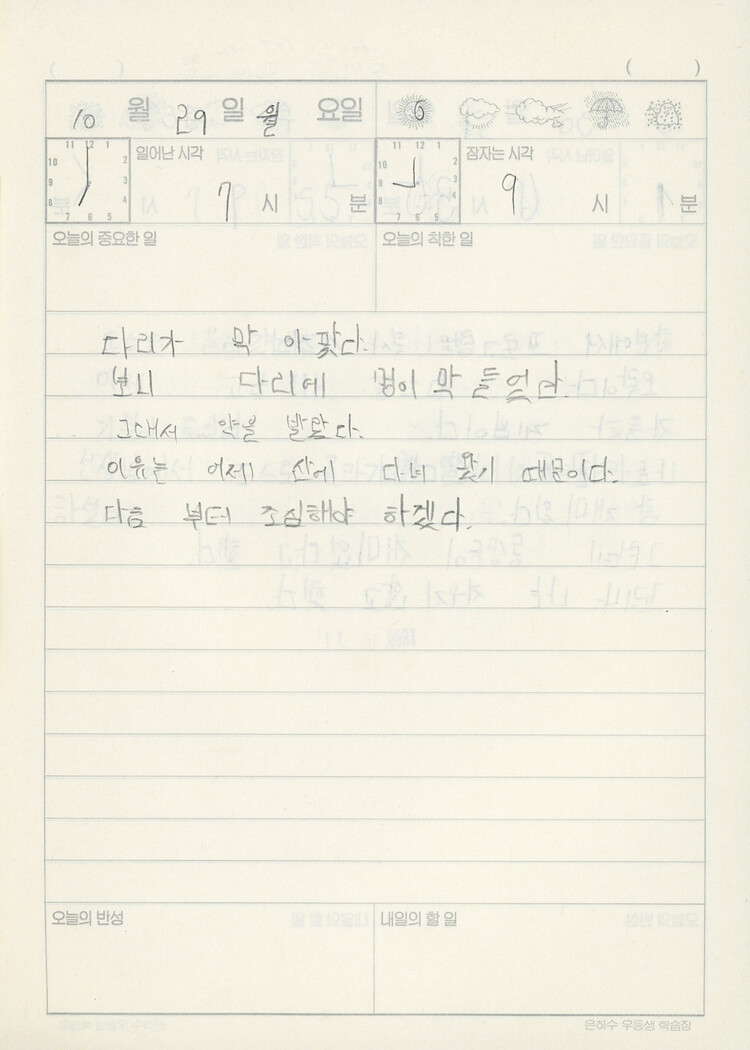 ( )
10 월 29 일 월 요일
일어난 시각
7 시 분
잠자는 시각
9 시 분
11 12 1
10 2
9 3
8 4
7 6 5
11 12 1
10 2
9 3
8 4
7 6 5
오늘의 중요한 일
오늘의 착한 일
다리가 막 아팠다.
보니 다리에 멍이 막 들었다.
그래서 약을 발랐다.
이유는 어제 산에 다녀 왔기 때문이다.
다음 부터 조심해야 하겠다.
오늘의 반성
내일의 할 일
은하수 우등생 학습장